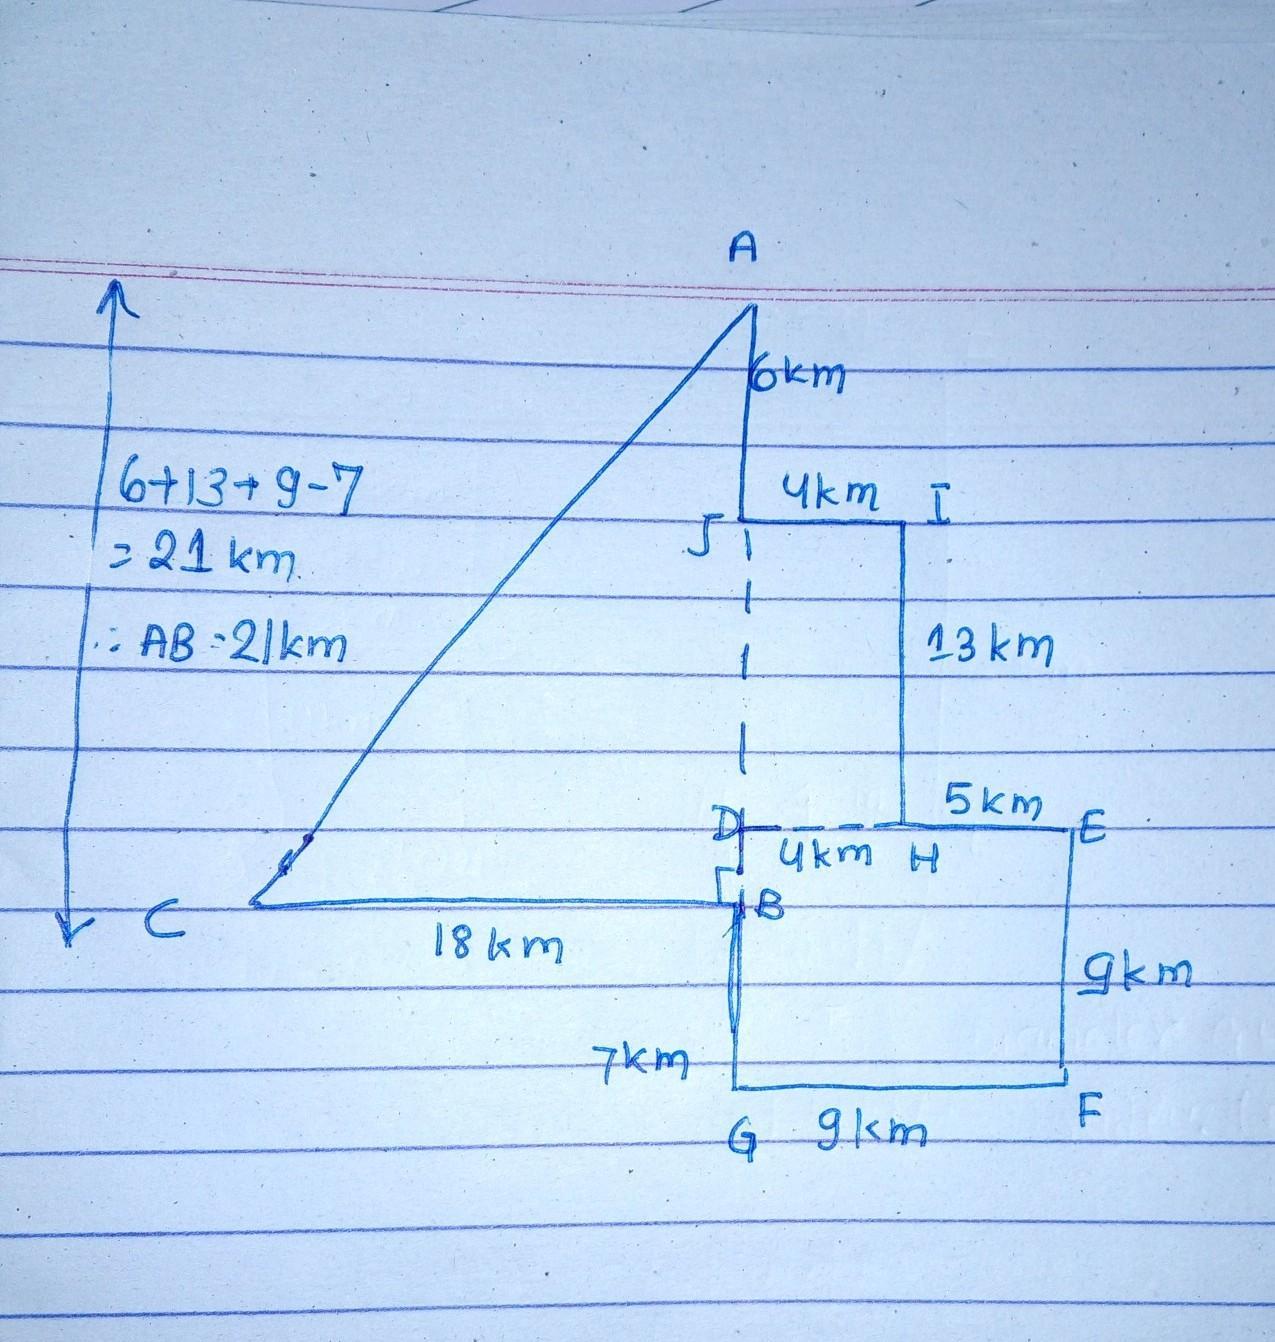 A
6km
4km I
J
6+13+9-7
= 21 km.
∴ AB = 21km
13 km
5km
D E
4km H
B
C
18 km
9km
7km
F
G 9km